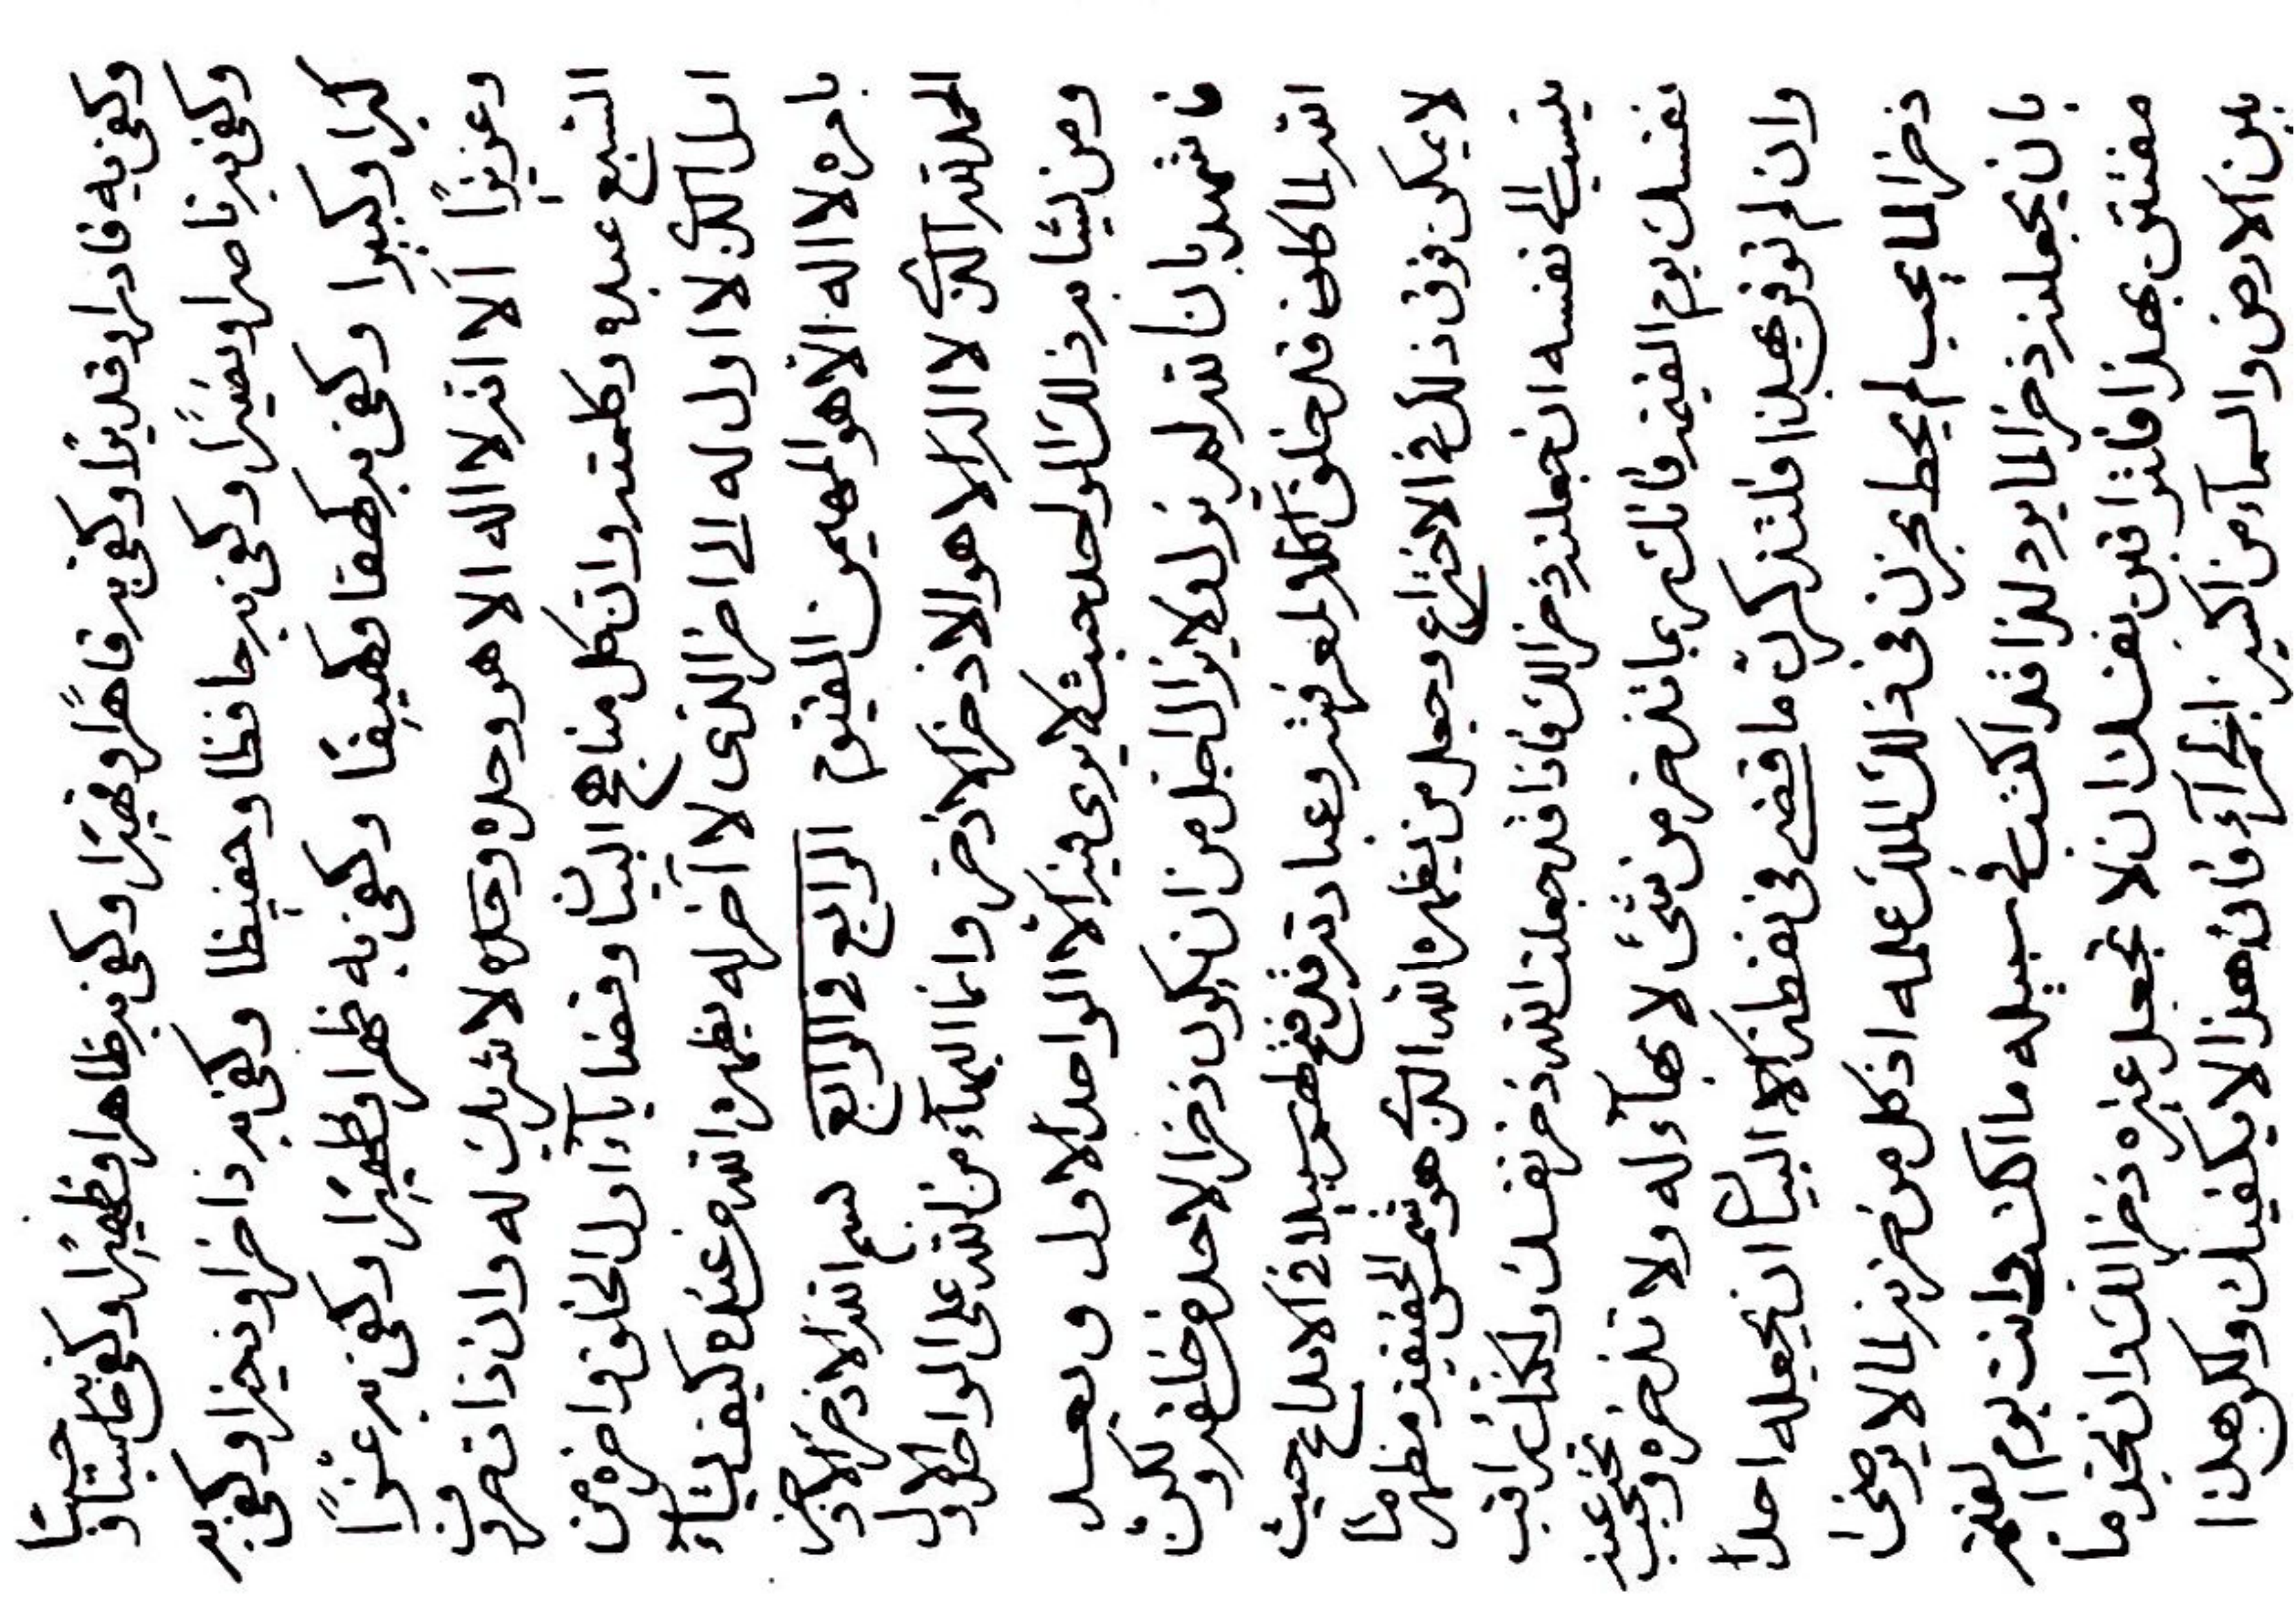 وكفى به قادرا وقديرا وكفى به قاهرا وقهيرا وكفى به ظاهرا وظهيرا وكفى به حاسبا و حسيبا
وكفى به ناصرا ونصيرا وكفى به حافظا وحفيظا وكفى به ذاخرا وذخيرا وكفى به
كبرا وكبيرا وكفى به كهفا وكهيفا وكفى به ظهرا وظهيرا وكفى به عزا
وعزيزا الا انه لا اله الا هو وحده وحده لا شريك له وان ذات حروف
السبع عبده وكلمته وان كل مناهج البيان وقضايآء اول الخلق واخره من
اول الذي لا اول له الى اخر الذى لا آخر له يظهره الله من عنده كيف يشآء
بامره لا اله الا هو المهيمن القيوم الرابع في الرابع بسم الله الاذخر الاذخر
الحمد لله الذي لا اله الا هو الاذخر الاذخر وانما البهآء من الله على الواحد الاول
ومن يشابه ذلك الواحد حيث لا يرى فيه الا الواحد الاول وبعد
فاشهد بان الله لم يزل ولا يزال اجل من ان يكون ذخرا لاحد من خلقه ولكن
الله لما كان قد خلق الكل لمعرفته وعبادته قد فتح لهم سبيلا في الابداع حيث
لا يمكن فوق ذلك في الاختراع وجعل من يظهره الله الذي هو شمس الحقيقة مظهر
ينسب الى نفسه ان جعلته ذخرا لك فاذا قد جعلت الله ذخر نفسك ولكنك راقب
نفسك يوم القيمة فانك ربما تذخر من شئ لا بهآء له ولا تذخره وتحجب
وان لم توقن بهذا فلتذكرن ما قضى في نقطة البيان ان يجعله احدا
ذخرا لما يحب لم يحط بحزن في ذلك الملك علمه اذ كل من حزنه لما لا
بان يجعلنه ذخرا لما يرد لذا قد في سبيله ما وانت يوم القيمة
مفتتن بهذا فلتراقبن نفسك ان لا تجعل غيره ذخرا لك وان تخذ ما
بين الارض والسمآء من اكبر فان هذا لا يكفيك ولكن بهذا